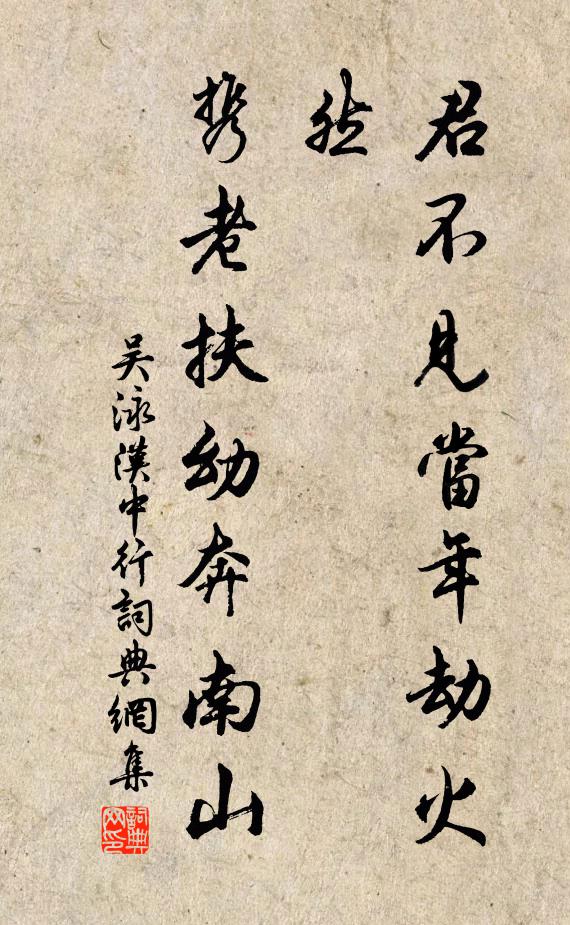 君不見當年劫火
然
携老扶幼奔南山
吴泳漢中行詞典網集
詞典网印